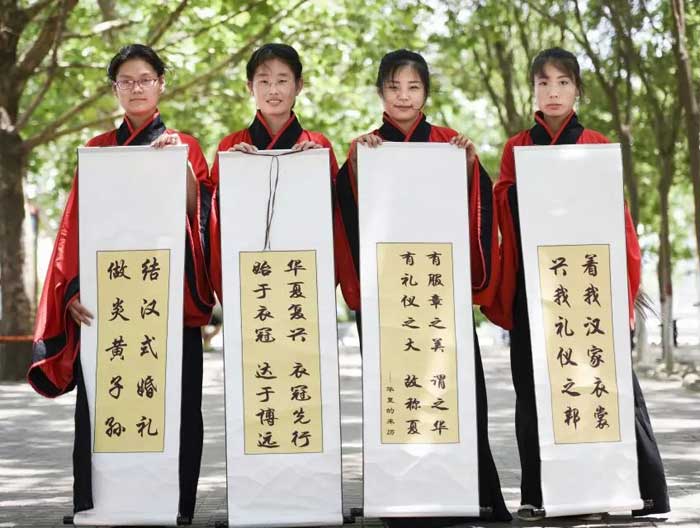 结汉式婚礼
做炎黄子孙
华夏复兴 衣冠先行
始于衣冠 达于博远
有服章之美 谓之华
有礼仪之大 故称夏
——华夏的来历
着我汉家衣裳
兴我礼仪之邦